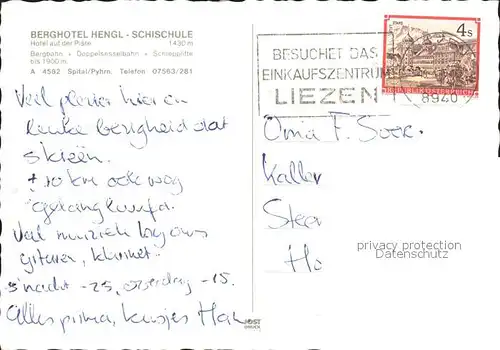 BERGHOTEL HENGL - SCHISCHULE
Hotel auf der Piste 1430 m
Bergbahn + Doppelsesselbahn + Schlepplifte
bis 1900 m
A 4582 Spital/Pyhrn. Telefon 07563/281
Veel plezier hier en
leuke bezigheid dat
skieën.
± 10 km
Veel muziek bij ons
gitaar, klarinet.
's nacht -25, overdag -15.
Alles prima, kusjes
BESUCHET DAS
EINKAUFSZENTRUM
LIEZEN
8940
4 S
REPUBLIK ÖSTERREICH
Oma F.
Kaller
Steen
Ho
privacy protection
Datenschutz
POST